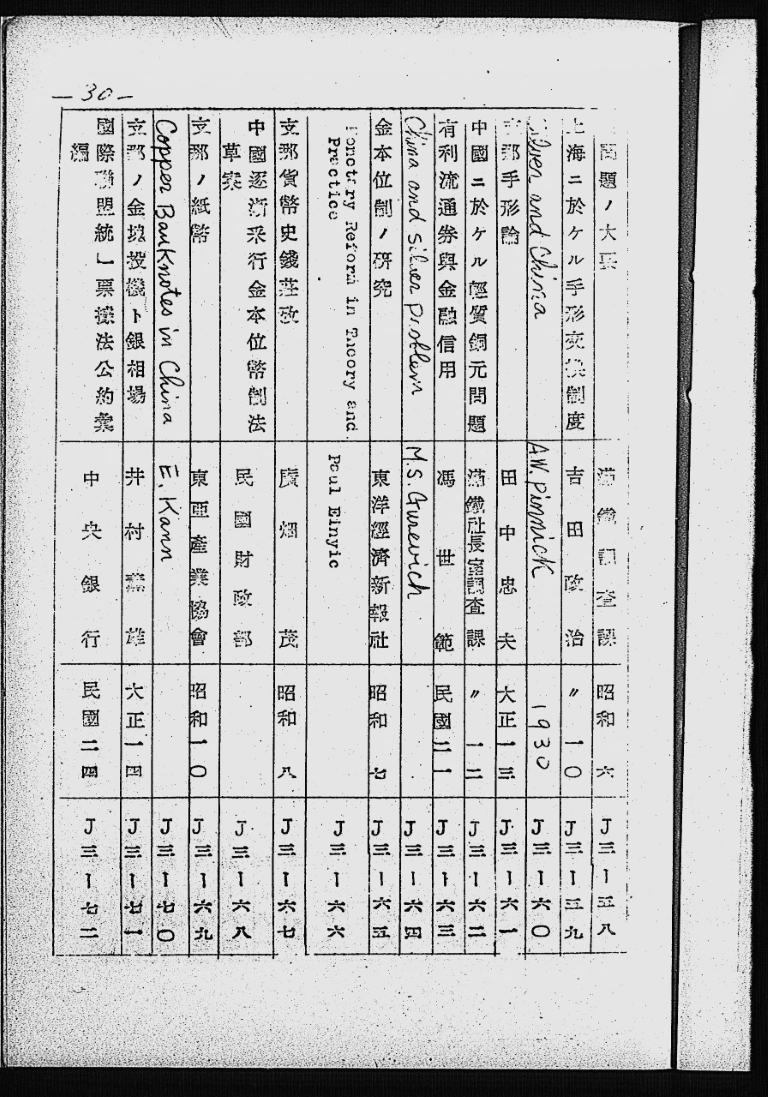 —30—
問題ノ大要 滿鐵調査課 昭和 六 J三ー五八
上海ニ於ケル手形交換制度 吉田政治 〃 一〇 J三ー五九
Silver and China A.W. Pinnick 1930 J三ー六〇
支那手形論 田中忠夫 大正一三 J三ー六一
中國ニ於ケル輕質銅元問題 滿鐵社長室調査課 〃 一二 J三ー六二
有利流通券與金融信用 馮世範 民國二一 J三ー六三
China and Silver Problem M.S. Gurevich J三ー六四
金本位制ノ研究 東洋經濟新報社 昭和 七 J三ー六五
Monetary Reform in Theory and
Practice Paul Einyic J三ー六六
支那貨幣史錢莊攷 廣畑茂 昭和 八 J三ー六七
中國逐漸采行金本位幣制法
草案 民國財政部 J三ー六八
支那ノ紙幣 東亞產業協會 昭和一〇 J三ー六九
Copper Banknotes in China E. Kann J三ー七〇
支那ノ金塊投機ト銀相場 井村薰雄 大正一四 J三ー七一
國際聯盟統一票據法公約彙
編 中央銀行 民國二四 J三ー七二